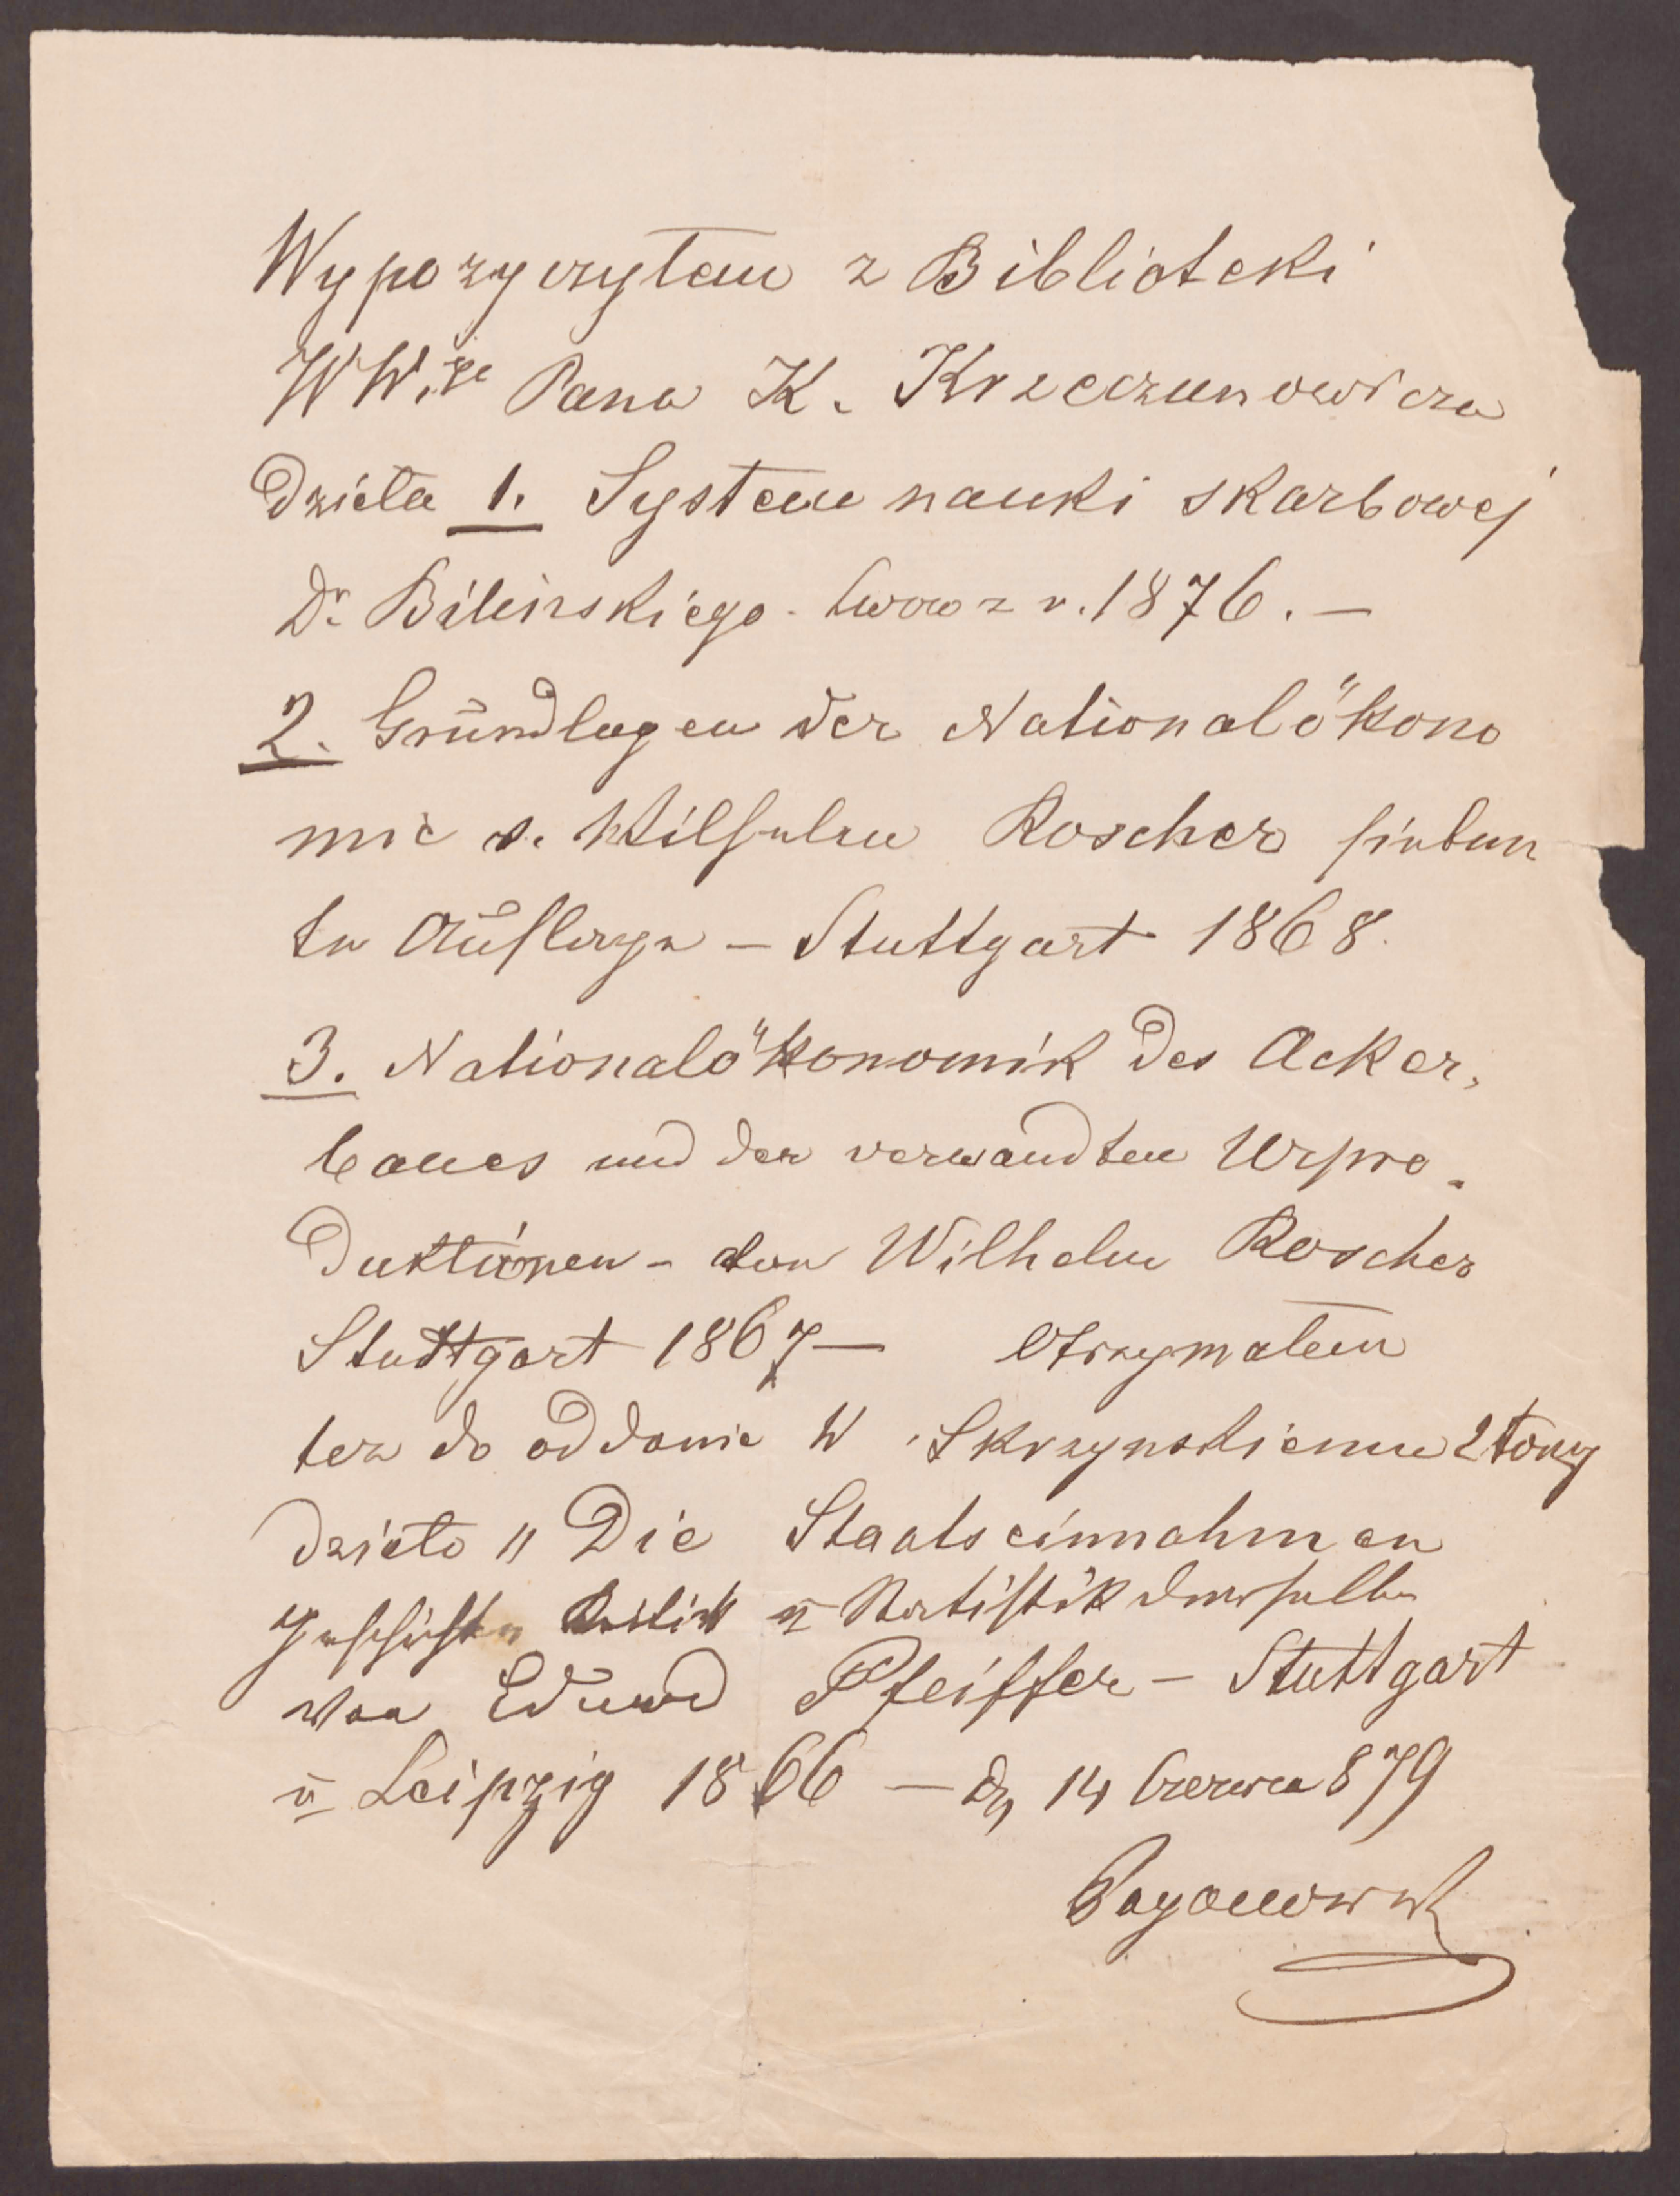 Wypozyczyłem z Biblioteki
WW. Pana K. Krzeczunowicza
Dzieła 1. System nauki skarbowej
Dr Bilinskiego - Lwow z r. 1876. —
2. Grŭndlagen der Nationalökono
mie v. Wilhelm Roscher sieben
te Aŭflage — Stuttgart 1868.
3. Nationalökonomik des Acker,
baues und der verwandten Urpro-
duktionen - von Wilhelm Roscher
Stuttgart 1867 — Otrzymałem
tez do oddania W. Skrzynskiemu 2 tomy
dzieło „ Die Staatseinnahmen
Geschichte Kritik ŭ Statistik derselben
von Eduard Pfeiffer — Stuttgart
ŭ Leipzig 1866 — Dn 14 Czerwca 879